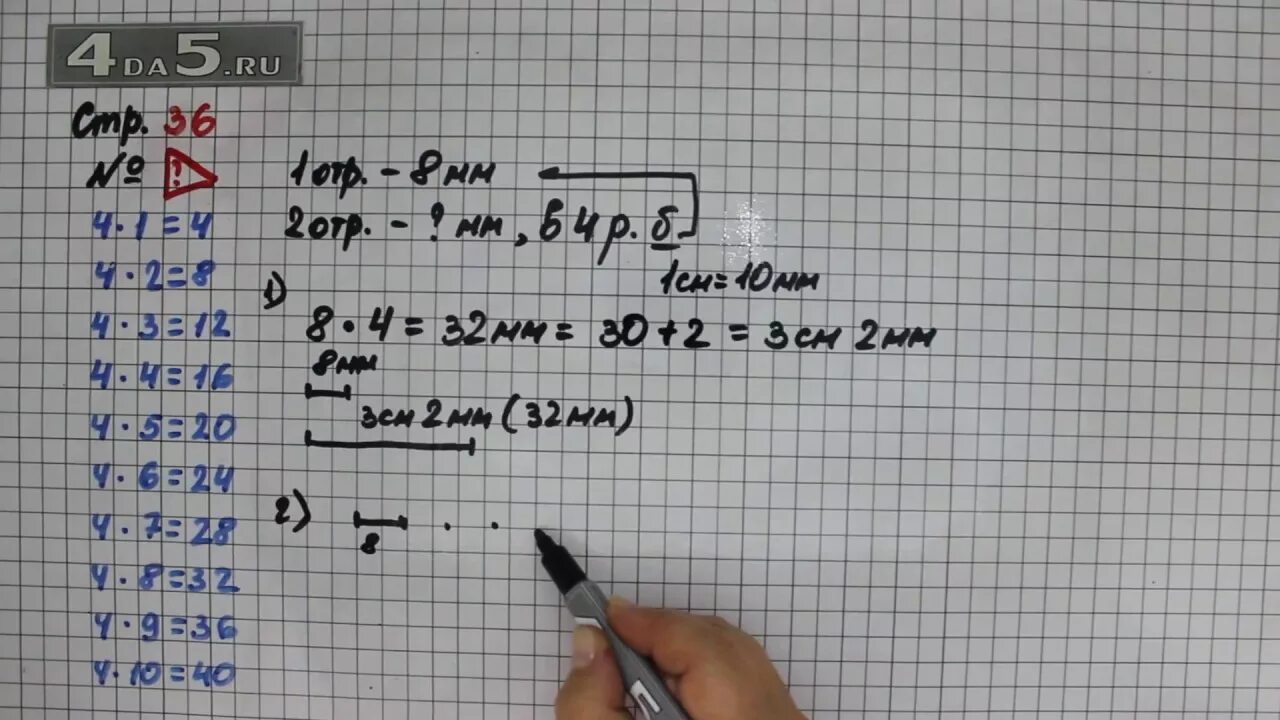 4DA5.RU
Стр. 36
№ ?
4·1=4
4·2=8
4·3=12
4·4=16
4·5=20
4·6=24
4·7=28
4·8=32
4·9=36
4·10=40
1 отр. - 8 мм
2 отр. - ? мм, в 4 р. б
1 см = 10 мм
1)
8·4 = 32 мм = 30+2 = 3 см 2 мм
8 мм
3 см 2 мм (32 мм)
2)
8